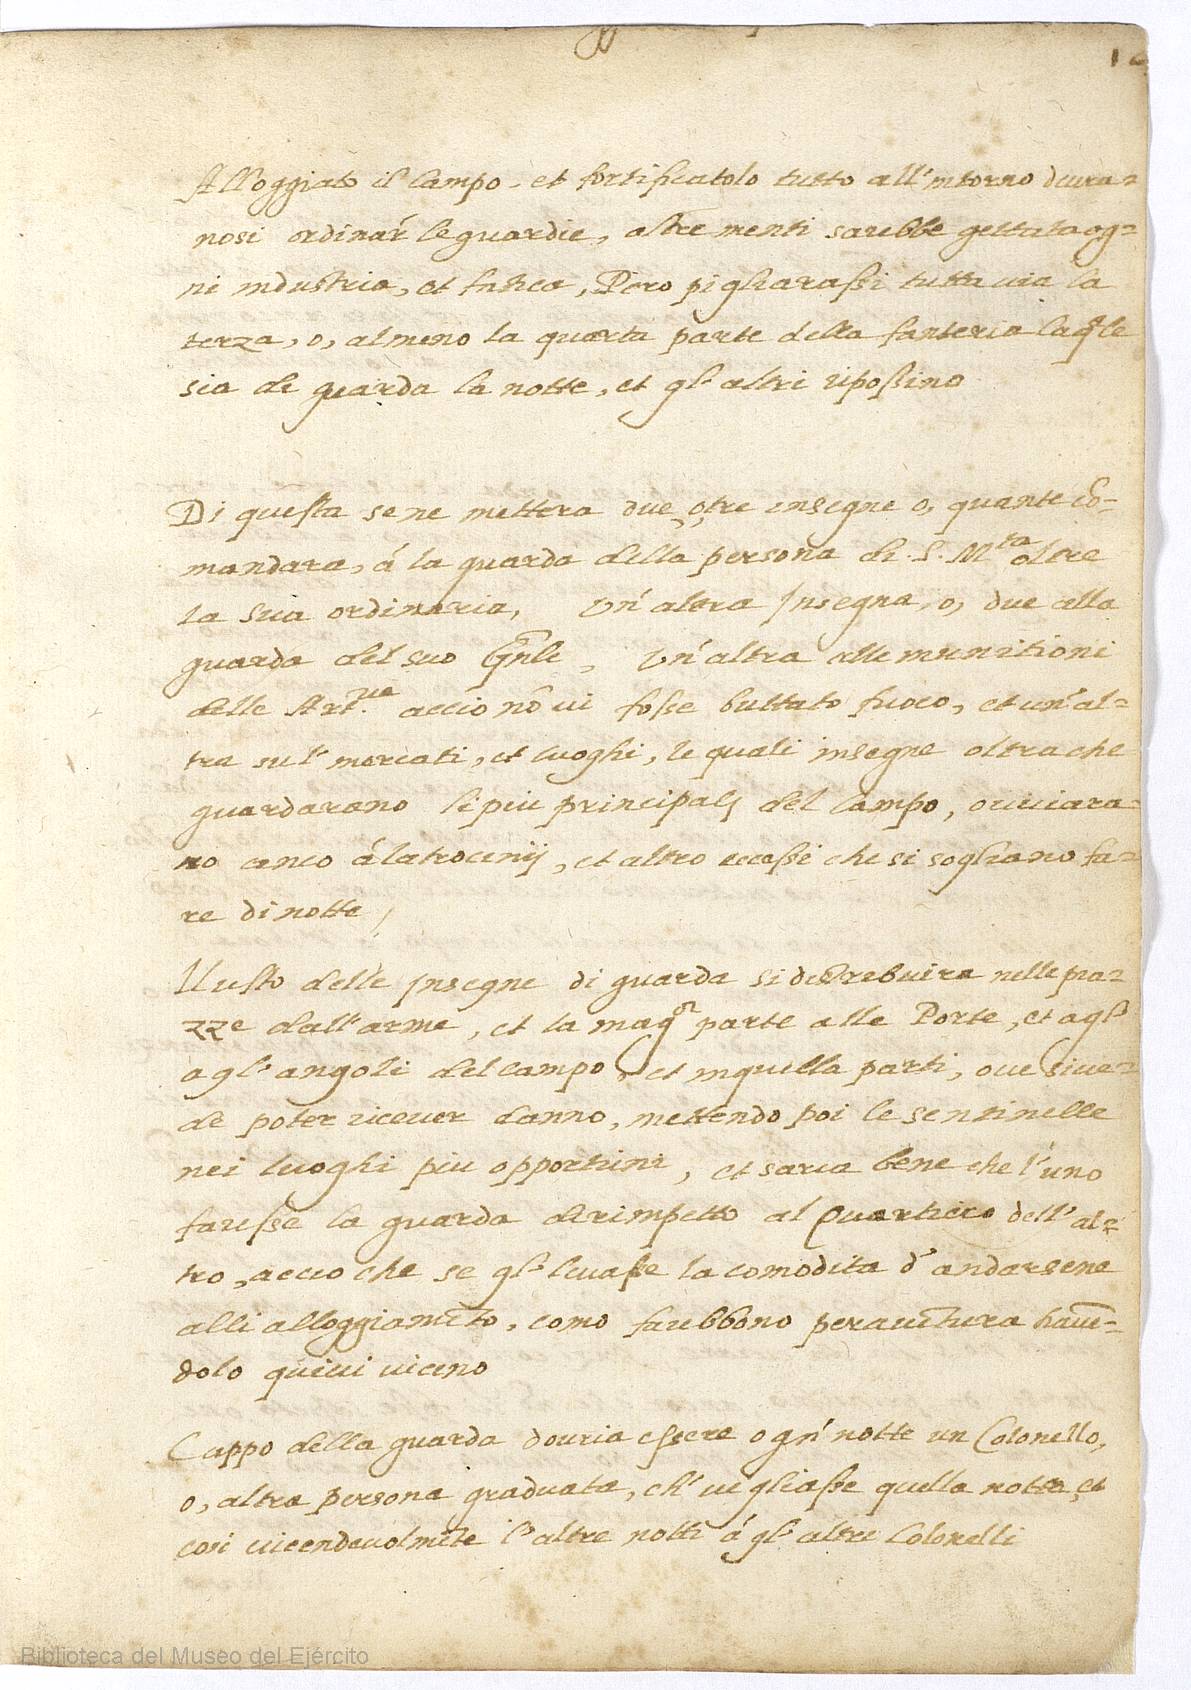 12
Alloggiato il Campo, et fortificatolo tutto all'intorno deura=
nosi ordinar le guardie, altre menti sarebbe gettata og=
ni industria, et fatica, Pero pigliarassi tutta via la
terza, o, almeno la quarta parte della fanteria laqle
sia de guarda la notte, et gl'altri ripossino
Di questa sene mettera due, o, tre insegne o, quante co=
mandara, á la guarda della persona di S. Mta oltre
la sua ordinaria, Un'altra Insegna, o, due alla
guarda del suo Gnle, Un'altra alle munitioni
delle Artrie accio no vi fosse buttato fuoco, et un'al=
tra sul' mercati, et luoghi, le quali insegne oltra che
guardarano li piu principali del Campo, ouuiara=
no anco á latrocinij, et altro eccessi che si sogliano fa=
re di notte,
Il resto delle Insegne di guarda si destrebuira nelle pia=
zze dall'arme, et la magor parte alle Porte, et agl'
agl'angoli del campo, et in quella parti, oue si ue=
de poter riceuer danno, mettendo poi le sentinelle
nei luoghi piu opportuni, et saria bene che l'uno
facesse la guarda derimpetto al Quartiero dell'al=
tro, accio che se gl'leuasse la comodita d'andarsene
alli alloggiameto, como farebbono perauetura haue=
dolo quiui vicino
Cappo della guarda douria essere ogni notte un Colonello,
o, altra persona graduata, ch'uigliasse quella notte, et
cosi vicendeuolmete l'altre notti á gl'altri Colonelli
Biblioteca del Museo del Ejército